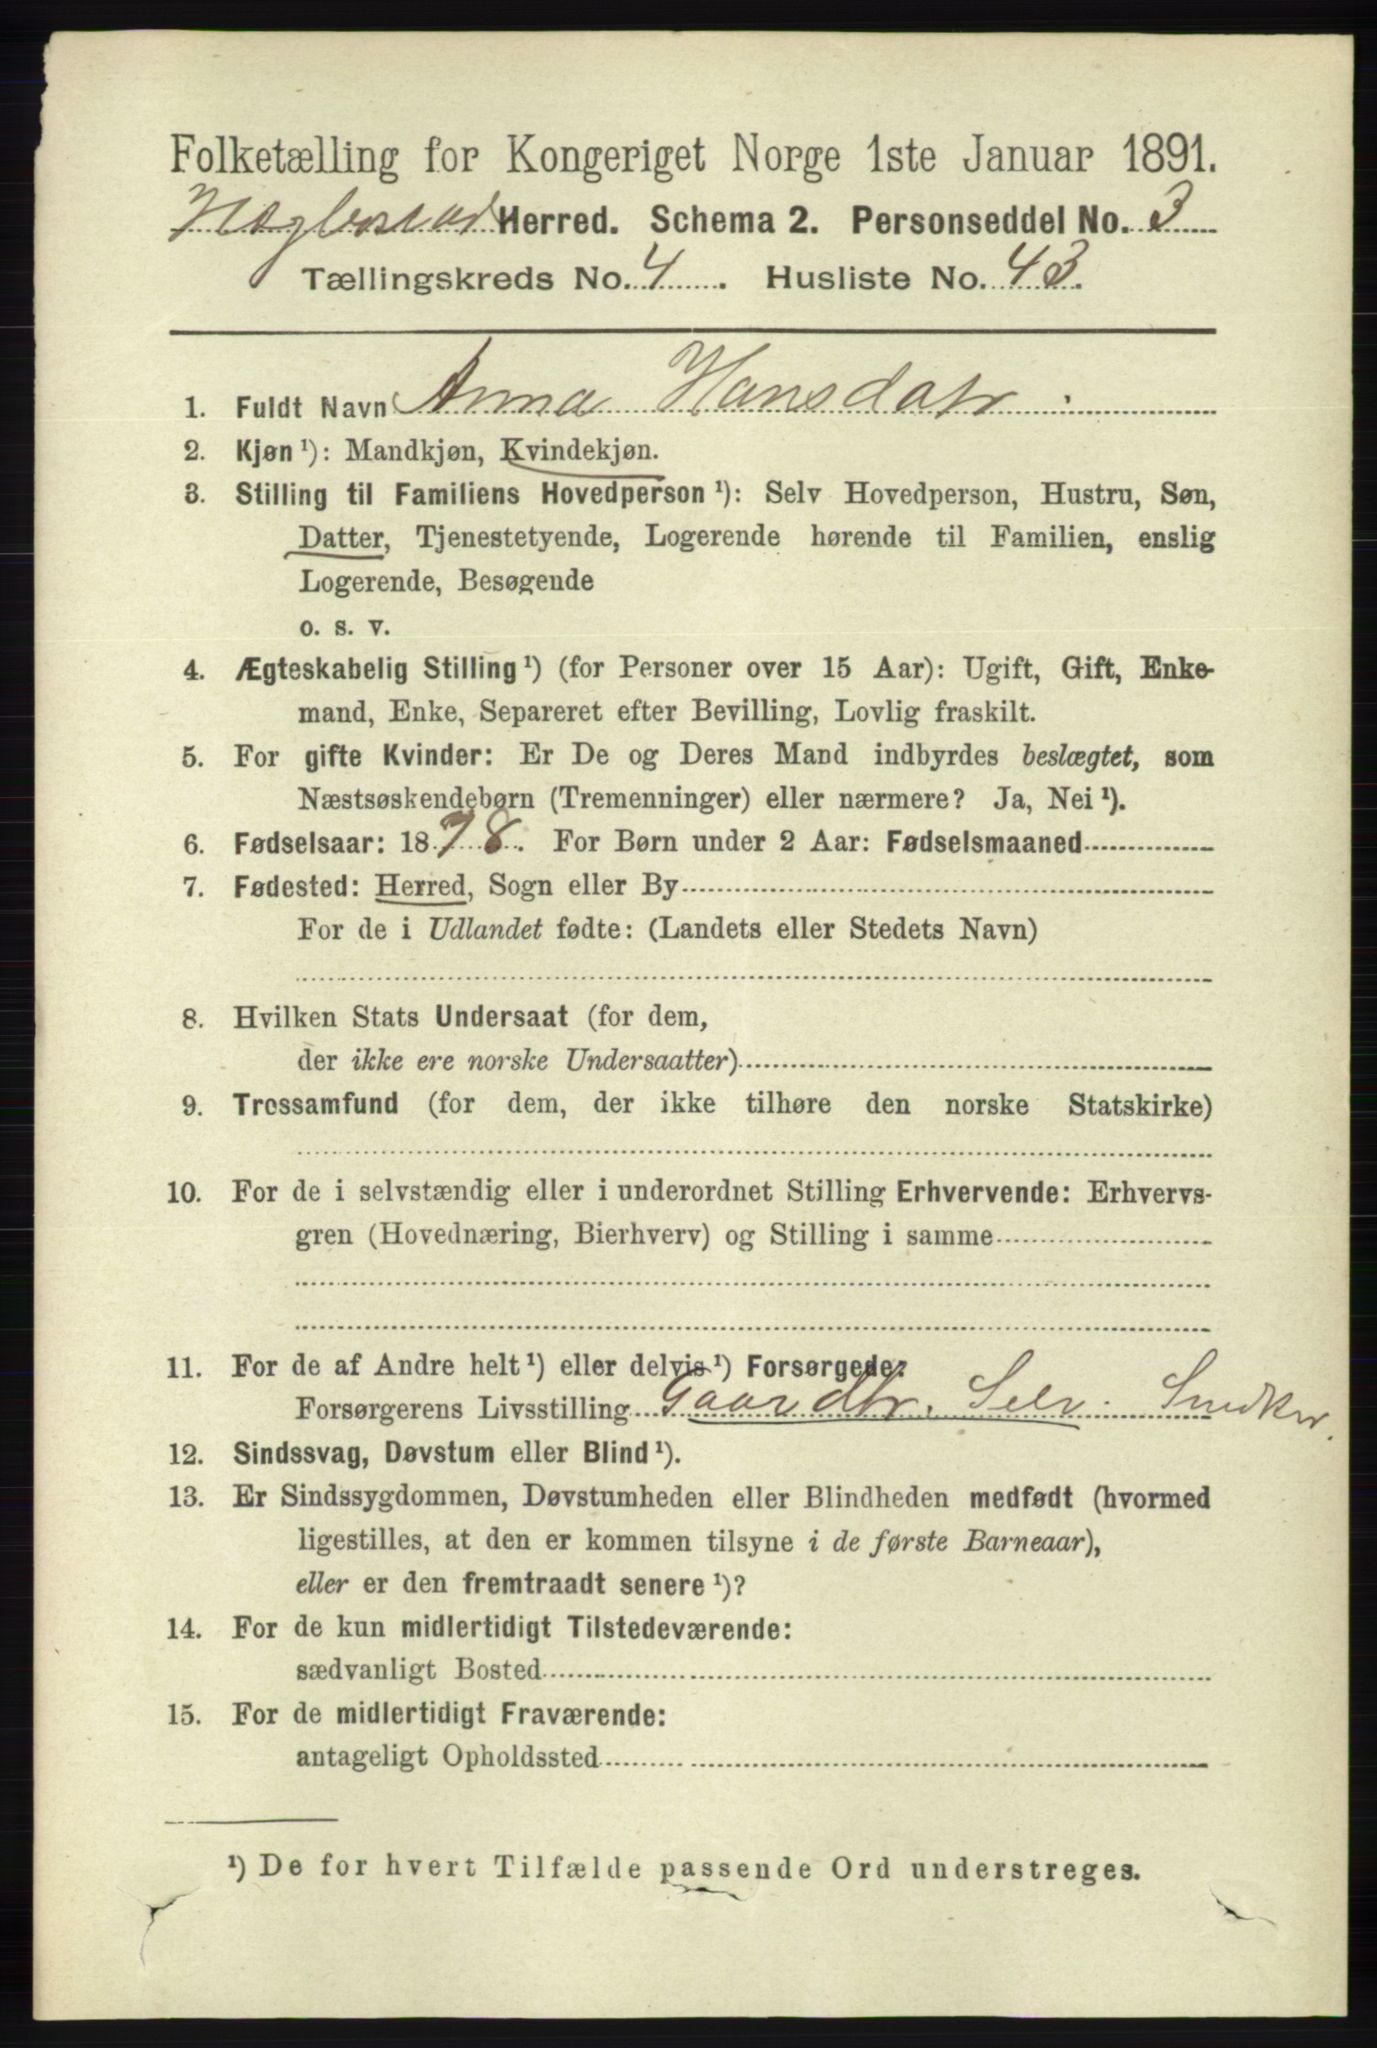 Folketælling for Kongeriget Norge 1ste Januar 1891.
Hægbostad Herred. Schema 2. Personseddel No. 3
Tællingskreds No. 4. Husliste No. 43.
1. Fuldt Navn Anna Hansdatr
2. Kjøn ¹): Mandkjøn, Kvindekjøn.
3. Stilling til Familiens Hovedperson ¹): Selv Hovedperson, Hustru, Søn,
Datter, Tjenestetyende, Logerende hørende til Familien, enslig
Logerende, Besøgende
o. s. v.
4. Ægteskabelig Stilling ¹) (for Personer over 15 Aar): Ugift, Gift, Enke-
mand, Enke, Separeret efter Bevilling, Lovlig fraskilt.
5. For gifte Kvinder: Er De og Deres Mand indbyrdes beslægtet, som
Næstsøskendebørn (Tremenninger) eller nærmere? Ja, Nei ¹).
6. Fødselsaar: 1878. For Børn under 2 Aar: Fødselsmaaned
7. Fødested: Herred, Sogn eller By
For de i Udlandet fødte: (Landets eller Stedets Navn)
8. Hvilken Stats Undersaat (for dem,
der ikke ere norske Undersaatter)
9. Trossamfund (for dem, der ikke tilhøre den norske Statskirke)
10. For de i selvstændig eller i underordnet Stilling Erhvervende: Erhvervs-
gren (Hovednæring, Bierhverv) og Stilling i samme
11. For de af Andre helt ¹) eller delvis ¹) Forsørgede:
Forsørgerens Livsstilling Gaardbr. Selv. Snedker.
12. Sindssvag, Døvstum eller Blind ¹).
13. Er Sindssygdommen, Døvstumheden eller Blindheden medfødt (hvormed
ligestilles, at den er kommen tilsyne i de første Barneaar),
eller er den fremtraadt senere ¹)?
14. For de kun midlertidigt Tilstedeværende:
sædvanligt Bosted
15. For de midlertidigt Fraværende:
antageligt Opholdssted
¹) De for hvert Tilfælde passende Ord understreges.